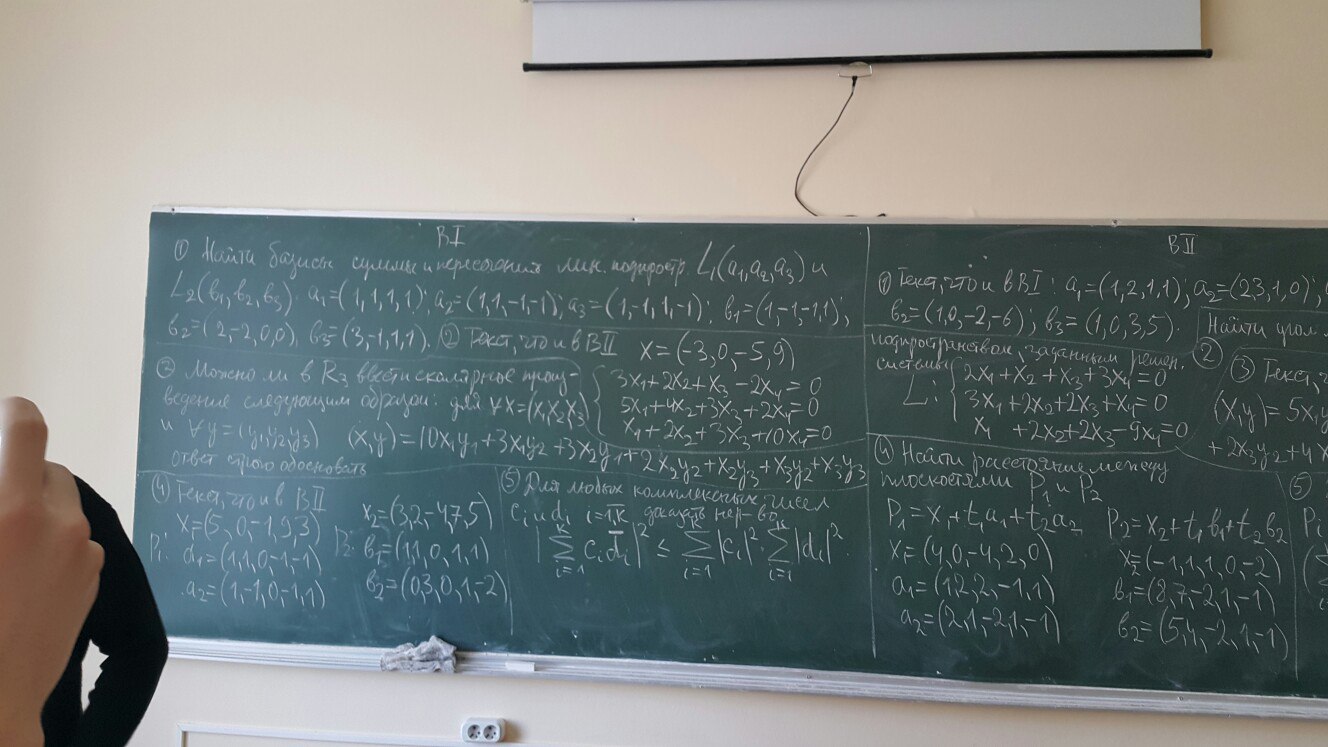 В I
① Найти базисы суммы и пересечения лин. подпростр. L₁(a₁,a₂,a₃) и
L₂(в₁,в₂,в₃). a₁=(1,1,1,1); a₂=(1,1,-1,-1); a₃=(1,-1,1,-1); в₁=(1,-1,-1,1);
в₂=(2,-2,0,0), в₃=(3,-1,1,1).
② Текст, что и в В II x=(-3,0,-5,9)
3x₁+2x₂+x₃-2x₄=0
5x₁+4x₂+3x₃+2x₄=0
x₁+2x₂+3x₃+10x₄=0
Можно ли в R₃ ввести скалярное произ-
ведение следующим образом: для ∀x=(x₁x₂x₃)
и ∀y=(y₁y₂y₃) (x,y)=10x₁y₁+3x₁y₂+3x₂y₁+2x₂y₂+x₂y₃+x₃y₂+x₃y₃
ответ строго обосновать
④ Текст, что и в В II
P₁: x₁=(5,0,-1,9,3)
a₁=(1,1,0,-1,-1)
a₂=(1,-1,0,-1,1)
P₂: x₂=(3,2,-4,7,5)
в₁=(1,1,0,1,1)
в₂=(0,3,0,1,-2)
⑤ Для любых комплексных чисел
cᵢ и dᵢ i=1,k доказать нер-во
|∑ᵢ₌₁ᵏ cᵢd̄ᵢ|² ≤ ∑ᵢ₌₁ᵏ|cᵢ|²·∑ᵢ₌₁ᵏ|dᵢ|².
В II
① Текст, что и в В I: a₁=(1,2,1,1); a₂=(2,3,1,0);
в₂=(1,0,-2,-6); в₃=(1,0,3,5).
② Найти угол
подпространством, заданным решен.
системы
L: 2x₁+x₂+x₃+3x₄=0
3x₁+2x₂+2x₃+x₄=0
x₁+2x₂+2x₃-9x₄=0
③ Текст,
(x,y)=5x₁y
+2x₃y₂+4x
④ Найти расстояние между
плоскостями P₁ и P₂
P₁=x₁+t₁a₁+t₂a₂
x₁=(4,0,-4,2,0)
a₁=(1,2,2,-1,1)
a₂=(2,1,-2,1,-1)
P₂=x₂+t₁в₁+t₂в₂
x₂=(-1,1,1,0,-2)
в₁=(8,7,-2,1,-1)
в₂=(5,4,-2,1,-1)
⑤